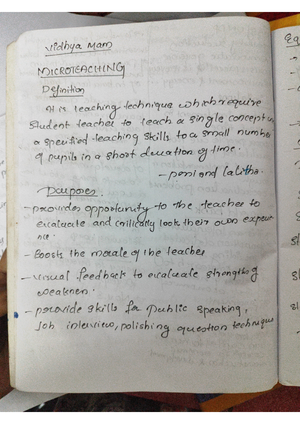 Vidhya Mam
MICROTEACHING
Definition
It is teaching technique which require
student teacher to teach a single concept in
a specified teaching skills to a small number
of pupils in a short duration of time.
- peni and lalitha.
Purposes.
- provides opportunity to the teacher to
evaluate and critically look their own experie
nce.
- boosts the morale of the teacher
- visual feedback to evaluate strengths of
weakness.
- provide skills for public speaking,
Job interview, polishing question technique